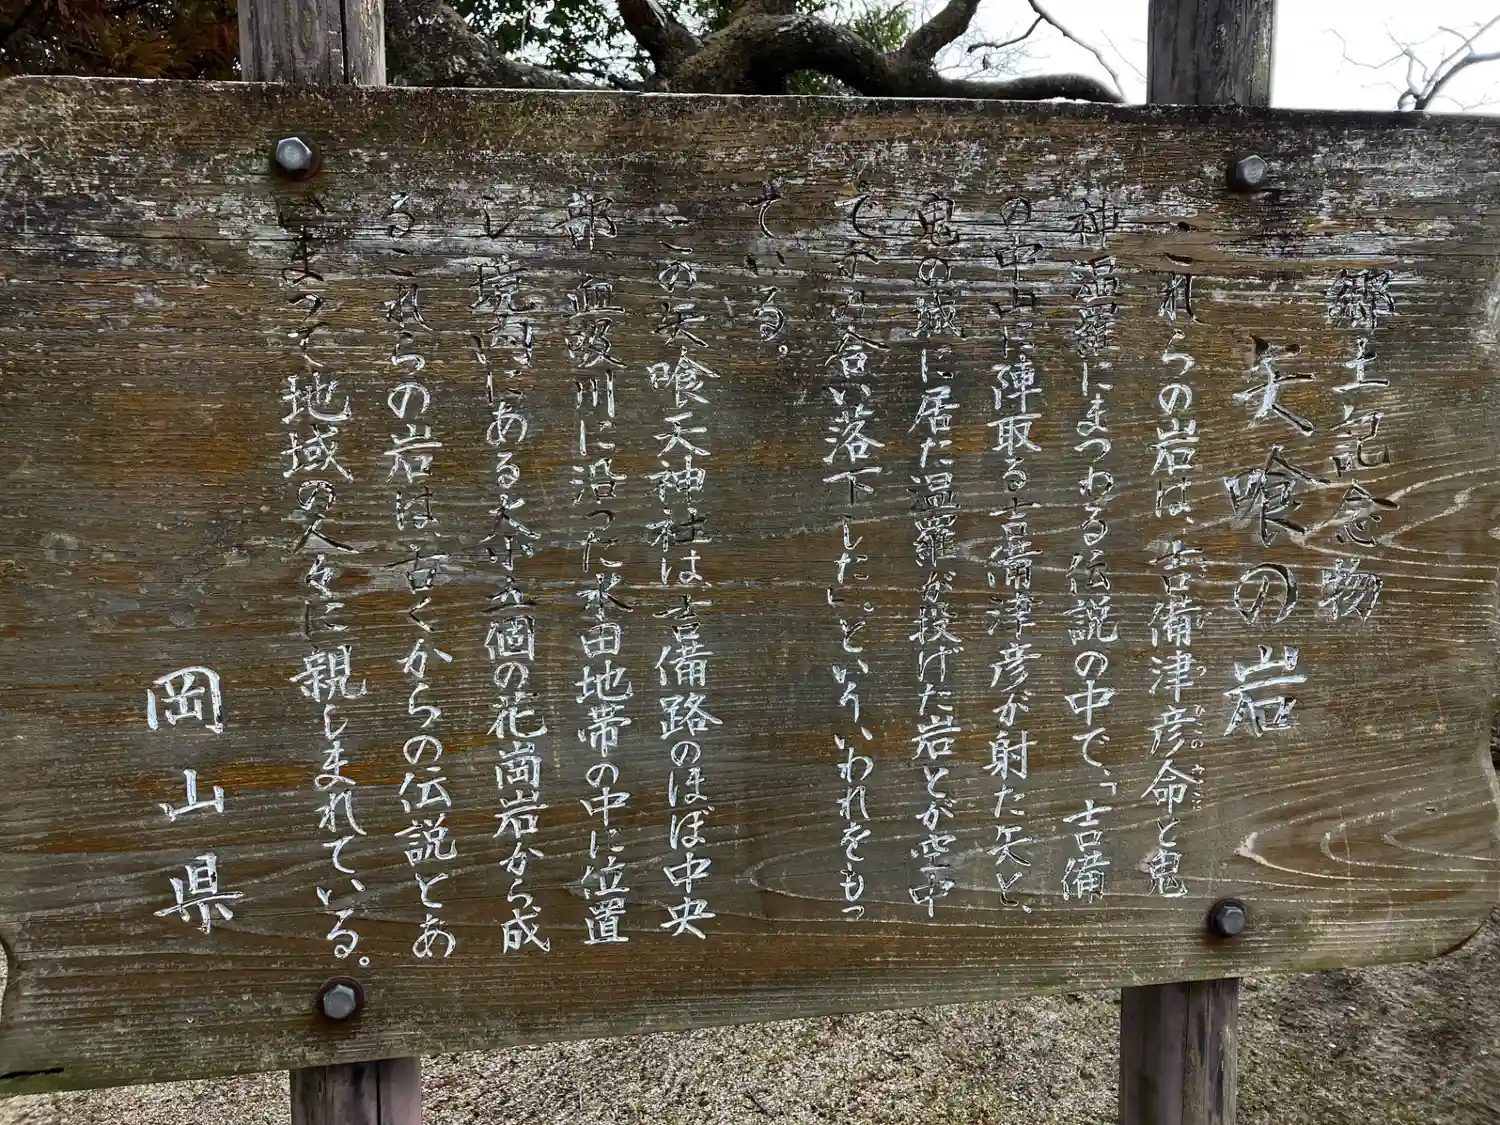 郷土記念物
矢喰の岩
これらの岩は、吉備津彦命と鬼
神温羅にまつわる伝説の中で、「吉備
の中山に陣取る吉備津彦が射た矢と、
鬼の城に居た温羅が投げた岩とが空中
でかみ合い落下した」。といういわれをもっ
ている。
この矢喰天神社は吉備路のほぼ中央
部、血吸川に沿った水田地帯の中に位置
し、境内にある大小五個の花崗岩から成
るこれらの岩は、古くからの伝説とあ
いまって地域の人々に親しまれている。
岡山県